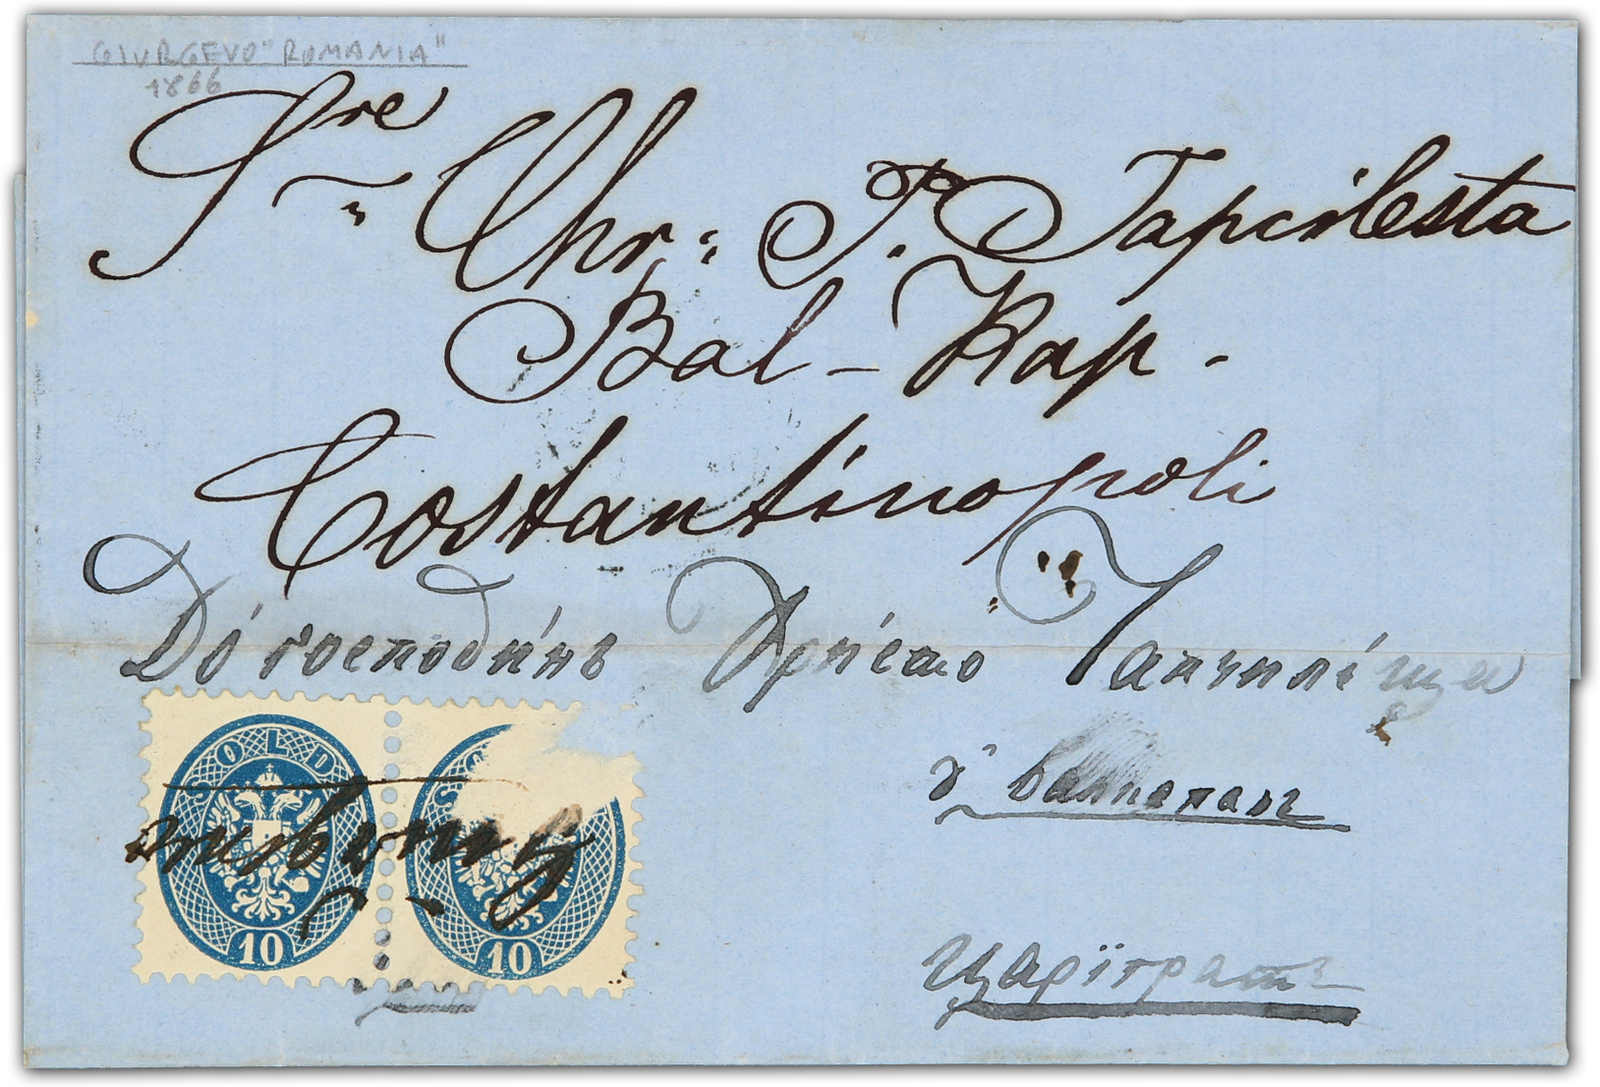 GIURGEVO "ROMANIA"
1866
Sre Chr: P. Tapcilesta
Bal-Kap.
Costantinopoli
До господинъ Христо Тапчилеща
Цариградъ
SOLD
10
10